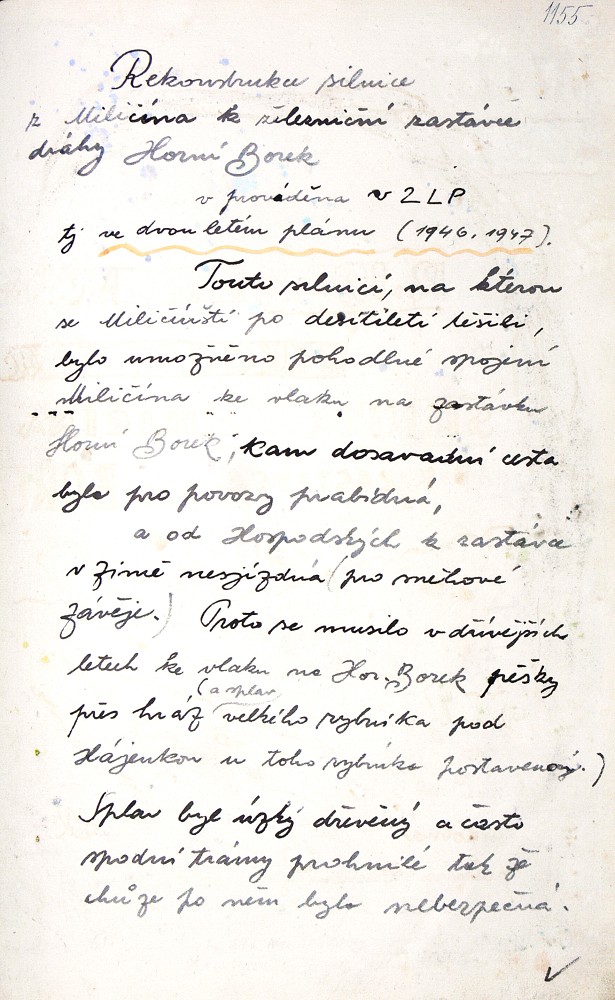 1155
Rekonstrukce silnice
z Miličína k železniční zastávce
dráhy Horní Borek
v prováděna v 2 LP
tj ve dvouletém plánu (1946. 1947).
Touto silnicí, na kterou
se Miličínští po desítiletí těšili,
bylo umožněno pohodlné spojení
Miličína ke vlaku na zastávku
Horní Borek, kam dosavadní cesta
byla pro povozy prabídná,
a od Hospodských k zastávce
v zimě nesjízdná (pro sněhové
závěje.) Proto se musilo v dřívějších
letech ke vlaku na Hor. Borek pěšky
(a splav
přes hráz velkého rybníka pod
Hájenkou u toho rybníka postavenou.)
Splav byl úzký dřevěný a často
spodní trámy prohnilé tak že
chůze po něm byla nebezpečná.